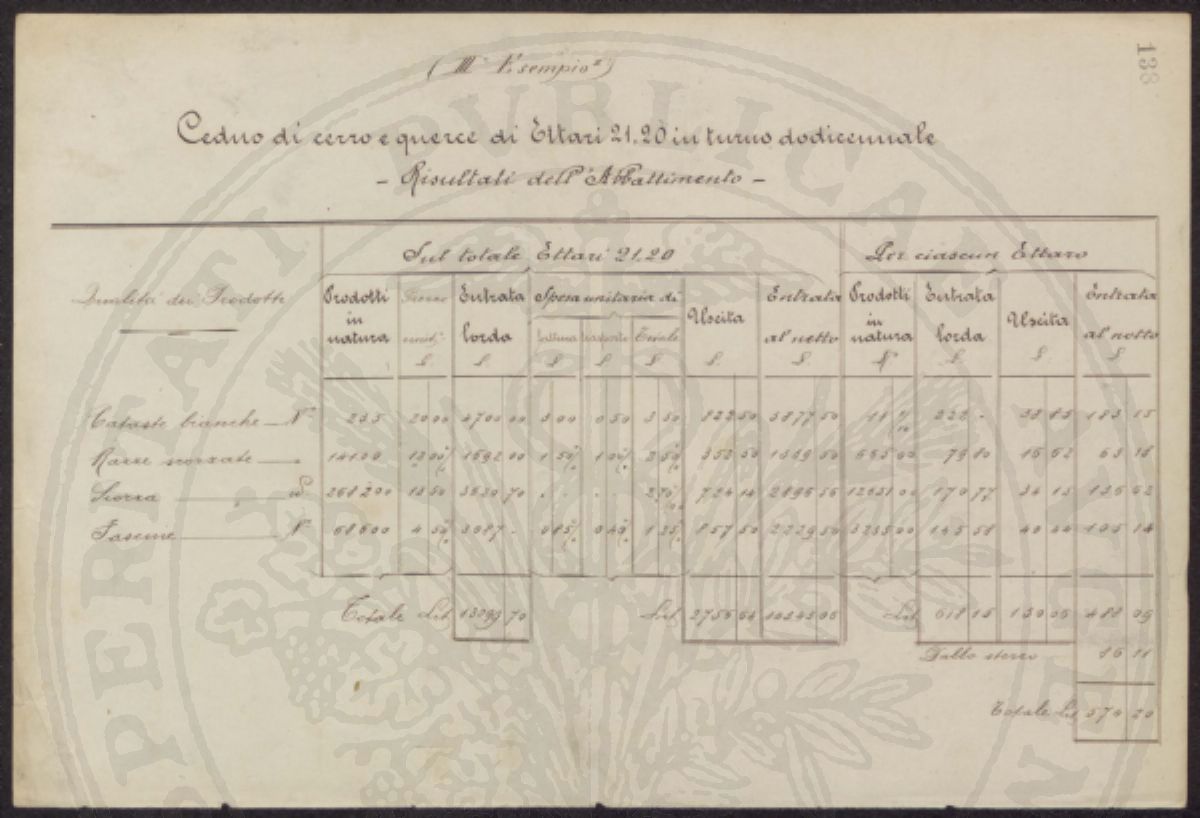 138
(III Esempio)
Ceduo di cerro e querce di Ettari 21.20 in turno dodicennale
- Risultati dell'Abbattimento -
Sul totale Ettari 21.20 Per ciascun Ettaro
Qualità dei Prodotti Prodotti in natura Entrata lorda Spesa unitaria di Uscita Entrata al netto Prodotti in natura Entrata lorda Uscita Entrata al netto
unit. trasporto Totale
£ £ £ £ £ £ £ N° £ £ £
Cataste bianche N° 235 20 00 4700 00 3 00 0 50 3 50 822 50 3877 50 222 - 38 85 183 15
scorzate 14100 12 00 1692 00 1 50 1 00 2 50 352 50 1339 50 665 00 79 80 16 62 63 18
Scorza 268200 13 50 3620 70 2 70 724 14 2896 56 12651 00 170 77 34 15 136 62
Fascine N° 68600 4 50 3087 - 0 85 0 40 1 25 857 50 2229 50 3235 00 145 58 40 44 105 14
Totale Lit 13099 70 Lit 2756 64 10343 06 Lit 618 15 130 06 488 09
Dallo sterzo
Totale Lit 570 20
PERITATI PVBLICAE